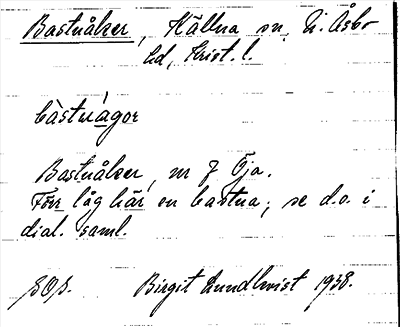 Bastuåker, Hällna sn. N. Åsbo
hd, Krist. l.
bàstuágor
Bastuåker, nr 7 Öja.
Förr låg här en bastua; se d.o. i
dial. saml.
Birgit Lundkvist 1938.